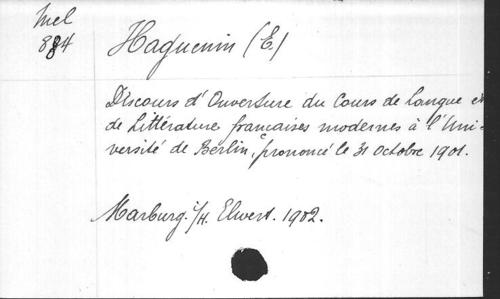 Mel
884
Haguenin (E.)
Discours d'Ouverture du Cours de Langue et
de Littérature françaises modernes à l'Uni-
versité de Berlin, prononcé le 31 octobre 1901.
Marburg i/H. Elwert. 1902.